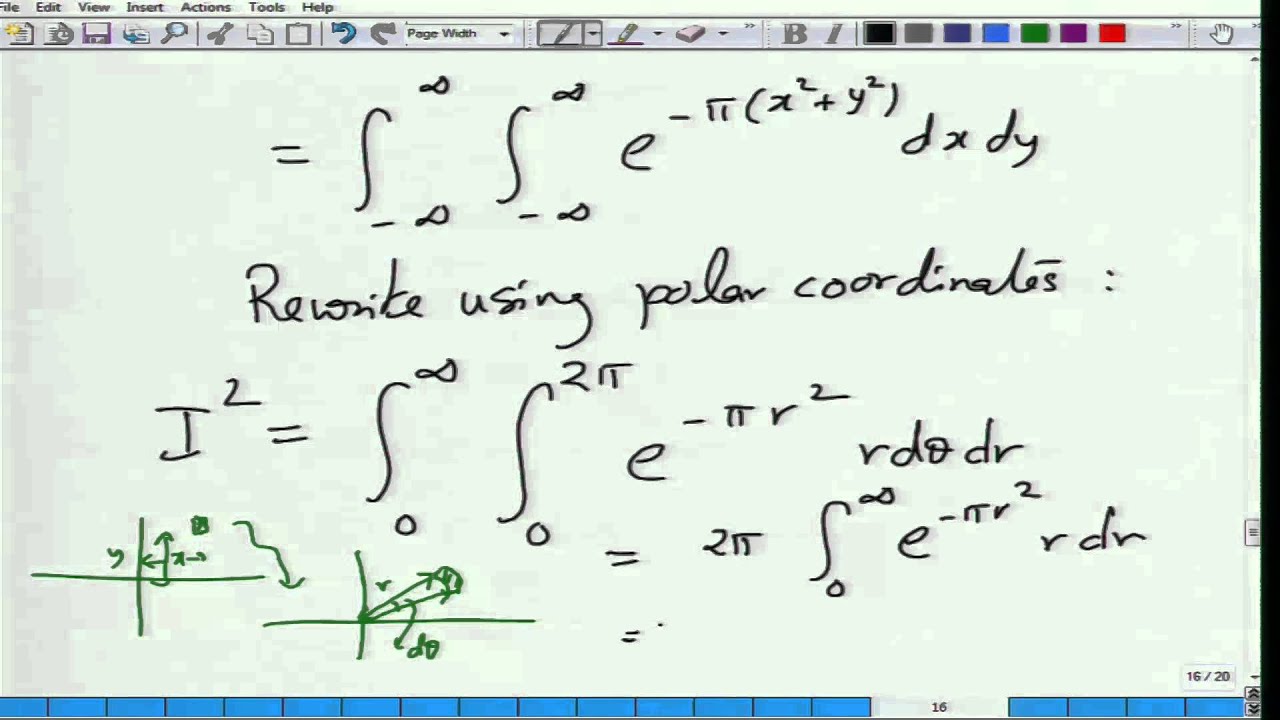 File Edit View Insert Actions Tools Help
Page Width B I
= ∫_{-∞}^{∞} ∫_{-∞}^{∞} e^{-π(x²+y²)} dx dy
Rewrite using polar coordinates :
I² = ∫_0^∞ ∫_0^{2π} e^{-πr²} r dθ dr
= 2π ∫_0^∞ e^{-πr²} r dr
y x
r
dθ
=
16 / 20
16